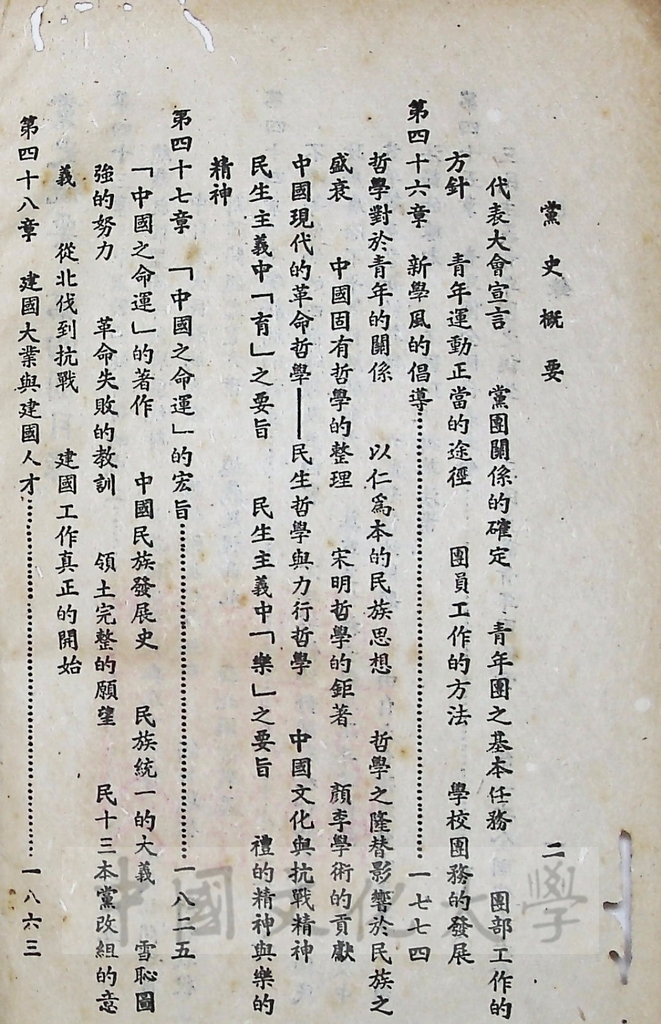 黨史概要 二
代表大會宣言 黨團關係的確定 青年團之基本任務 團部工作的
方針 青年運動正當的途徑 團員工作的方法 學校團務的發展
第四十六章 新學風的倡導……一七七四
哲學對於青年的關係 以仁爲本的民族思想 哲學之隆替影響於民族之
盛衰 中國固有哲學的整理 宋明哲學的鉅著 顏李學術的貢獻
中國現代的革命哲學——民生哲學與力行哲學 中國文化與抗戰精神
民生主義中「育」之要旨 民生主義中「樂」之要旨 禮的精神與樂的
精神
第四十七章 「中國之命運」的宏旨……一八二五
「中國之命運」的著作 中國民族發展史 民族統一的大義 雪恥圖
強的努力 革命失敗的教訓 領土完整的願望 民十三本黨改組的意
義 從北伐到抗戰 建國工作真正的開始
第四十八章 建國大業與建國人才……一八六三
中國文化大學